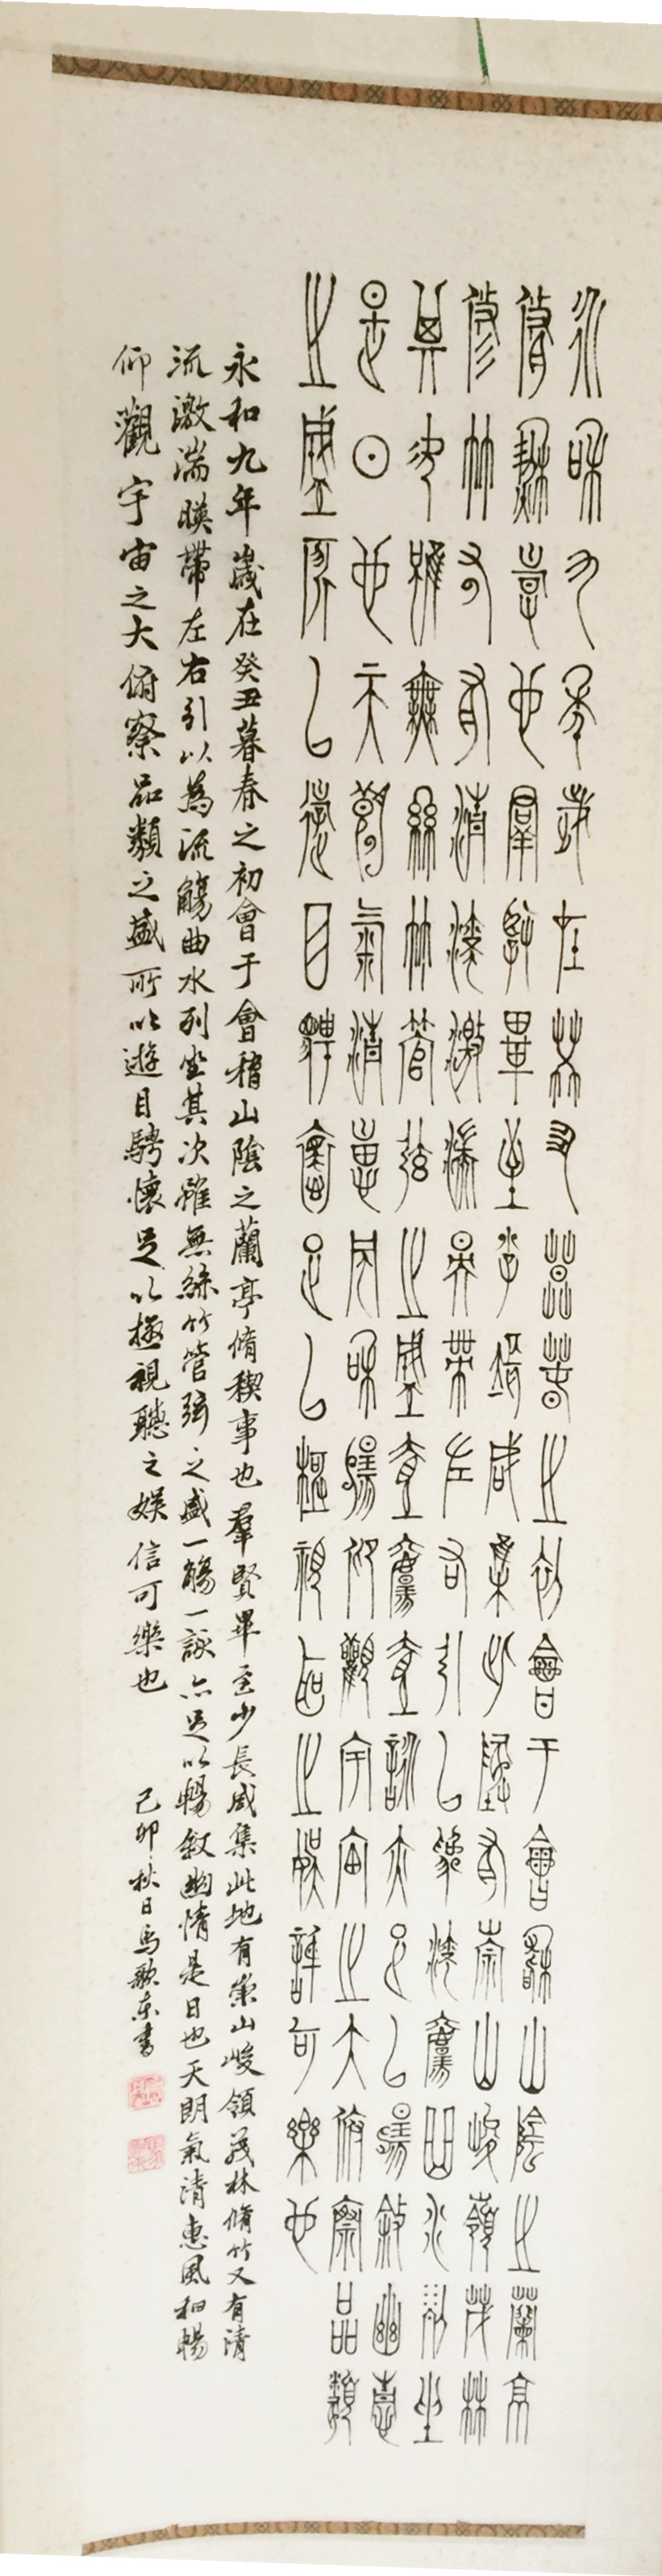 永和九年歲在癸丑暮春之初會于會稽山陰之蘭亭
脩禊事也羣賢畢至少長咸集此地有崇山峻嶺茂林
修竹又有清流激湍映帶左右引以為流觴曲水列坐
其次雖無絲竹管弦之盛一觴一詠亦足以暢敘幽情
是日也天朗氣清惠風和暢仰觀宇宙之大俯察品類
之盛所以遊目騁懷足以極視聽之娛信可樂也
永和九年歲在癸丑暮春之初會于會稽山陰之蘭亭脩稧事也羣賢畢至少長咸集此地有崇山峻領茂林脩竹又有清
流激湍暎帶左右引以為流觴曲水列坐其次雖無絲竹管弦之盛一觴一詠亦足以暢敘幽情是日也天朗氣清惠風和暢
仰觀宇宙之大俯察品類之盛所以遊目騁懷足以極視聽之娛信可樂也
己卯秋日馬歌東書